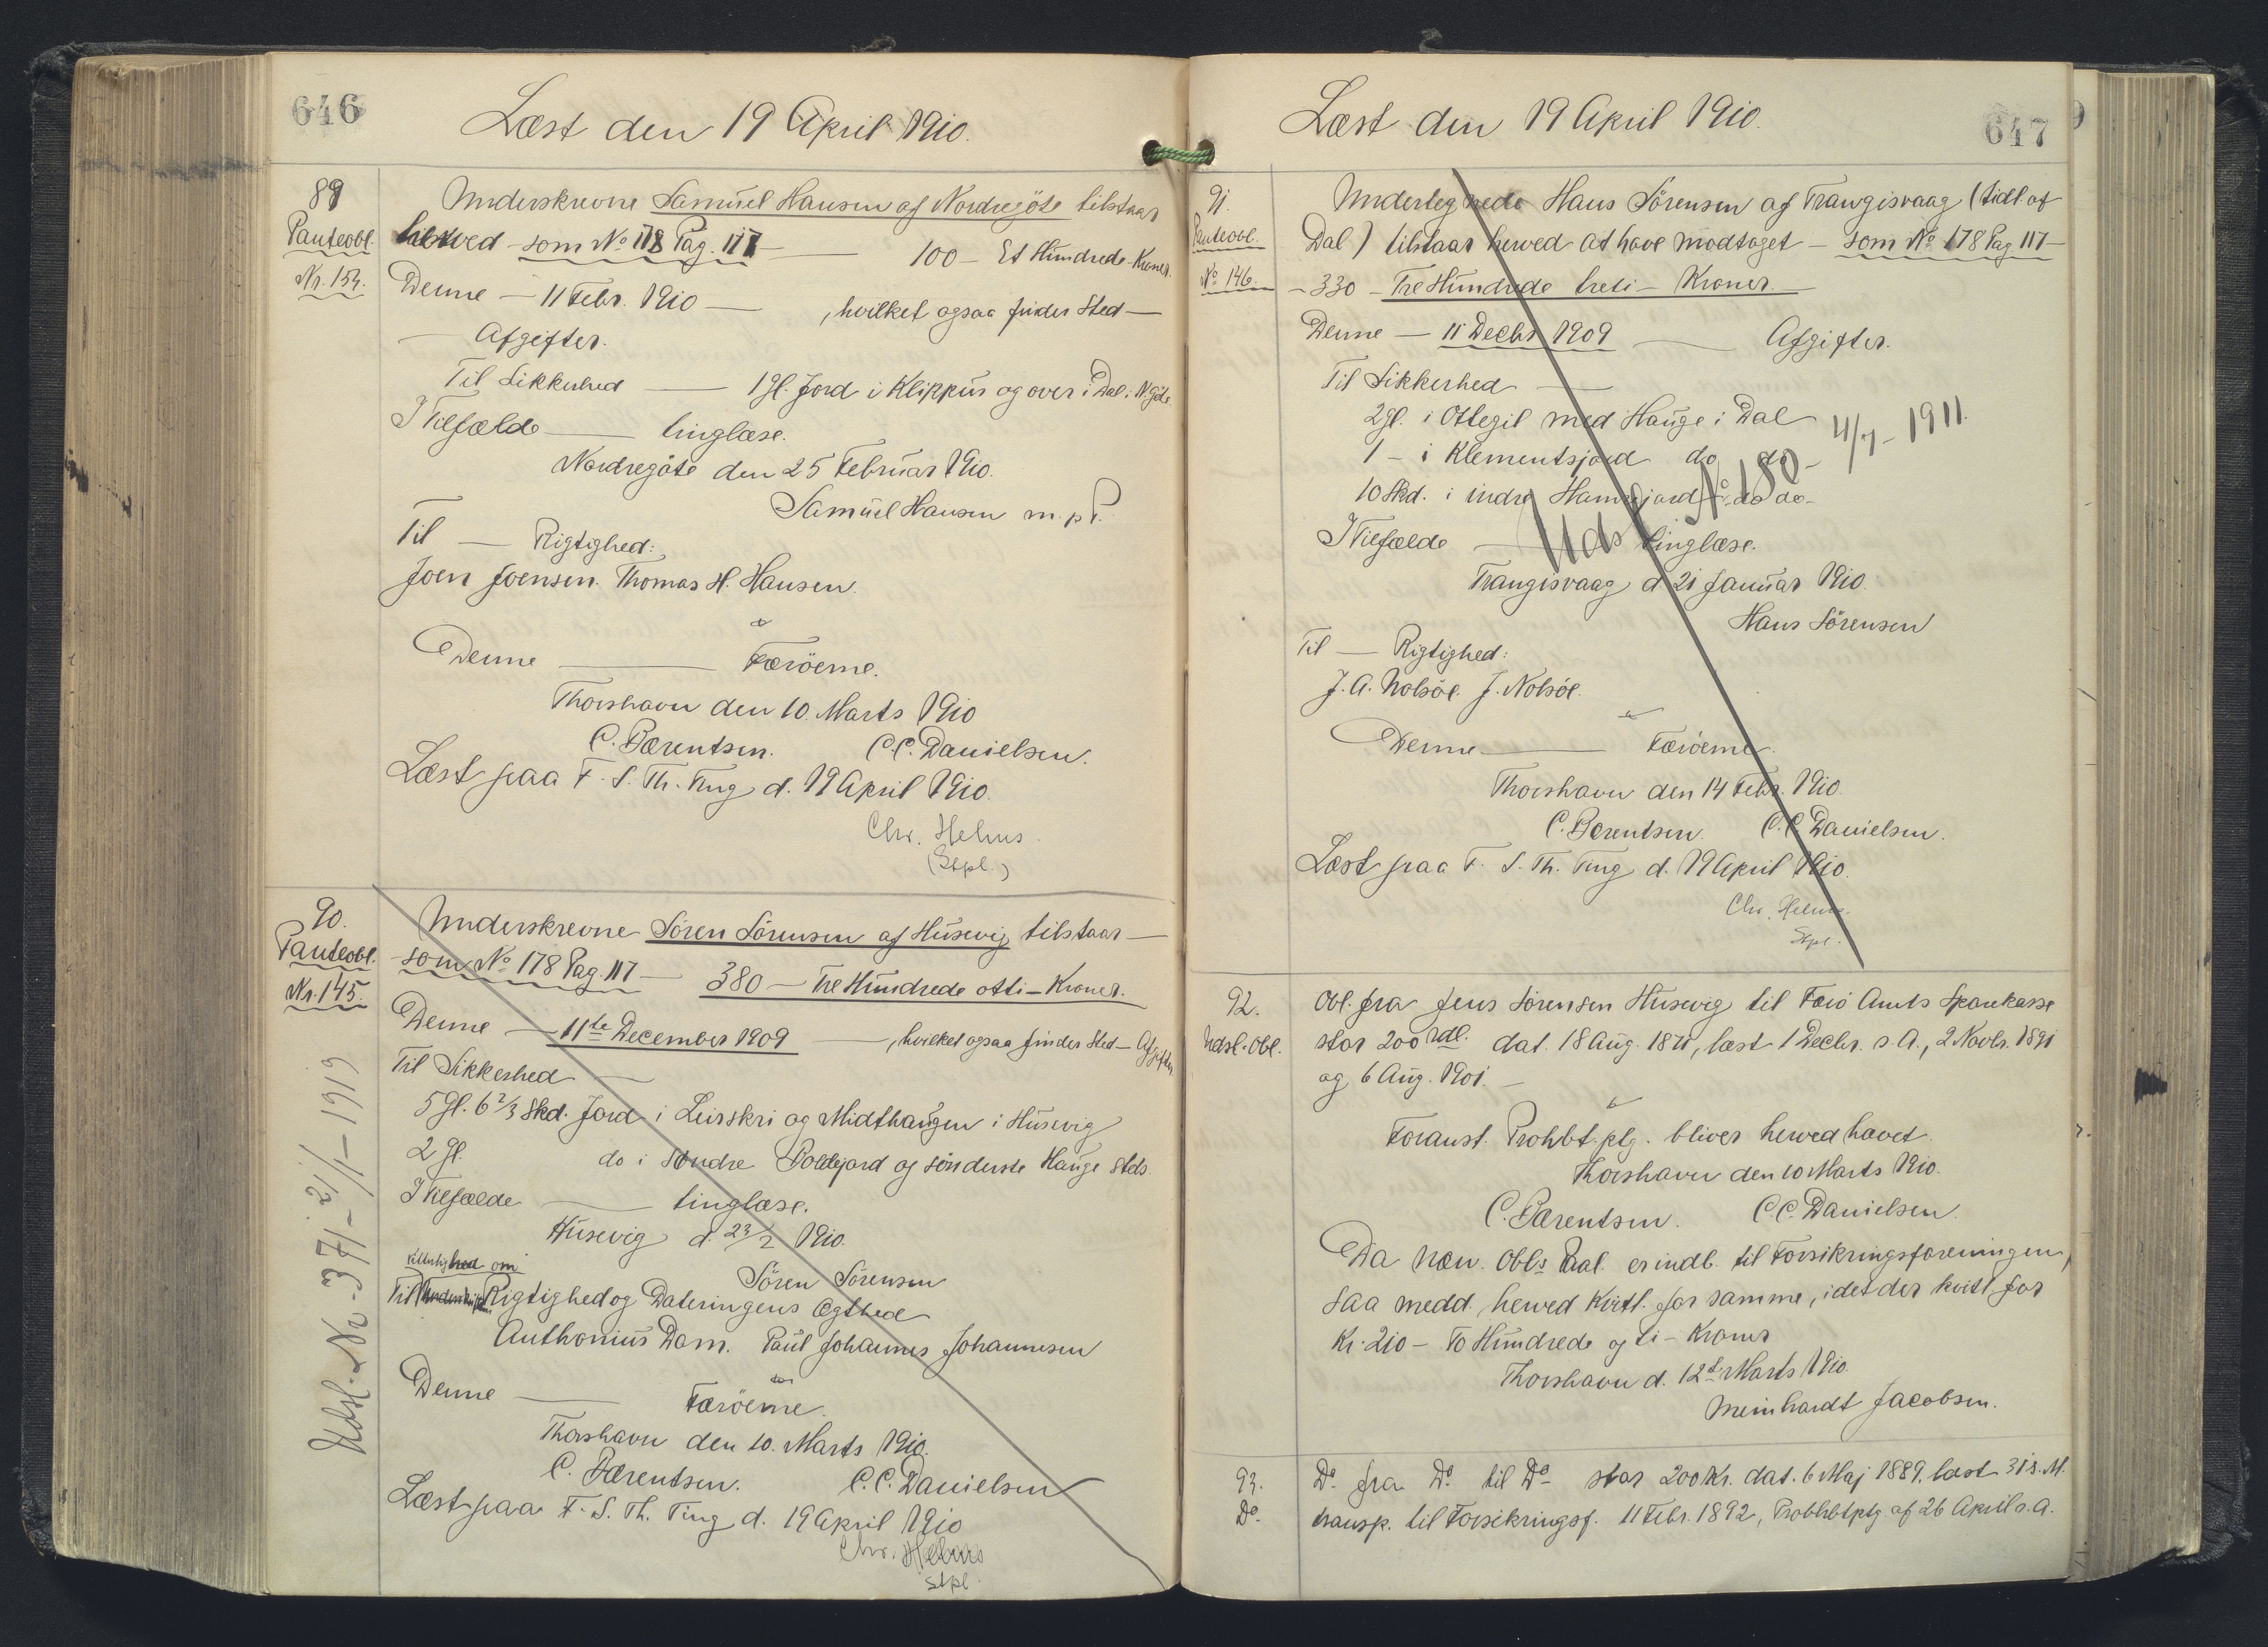 646
Læst den 19 April 1910.
89
Panteobl.
Nr. 153.
Underskrevne Samuel Hansen af Nordregöte tilstaar
herved - som No 178 Pag. 117 — 100 - Et Hundrede Kroner.
Denne — 11 Febr. 1910 — , hvilket ogsaa finder Sted —
— Afgifter.
Til Sikkerhed — 1 Gl. Jord i Klippun og over i Dal i N.Göte.
I Tilfælde — tinglæse.
Nordregöte den 25 Februar 1910.
Samuel Hansen m. p. P.
Til — Rigtighed:
Joen Joensen. Thomas H. Hansen.
Denne — Færöerne.
Thorshavn den 10. Marts 1910
C. Bærentsen. C.C. Danielsen.
Læst paa F. S. Th. Ting d. 19 April 1910.
Chr. Helms.
(Stpl.)
90.
Panteobl.
Nr. 145.
Udsl. Nr. 371 - 21/1 - 1919
Underskrevne Sören Sörensen af Husevig tilstaar —
som No 178 Pag. 117 — 380 — Tre Hundrede otti - Kroner.
Denne — 11te December 1909 — , hvilket ogsaa finder Sted — Afgifter.
Til Sikkerhed —
5 Gl. 6 2/3 Skd. Jord i Leirskri og Midthaugen i Husevig
2 Gl. do i Söndre Böldejord og sönderste Hauge steds.
I Tilfælde — tinglæse.
Husevig d. 23/2 1910.
Sören Sörensen
om
Til Rigtighed og Dateringens Ægthed
Anthonius Dam. Paul Johannes Johannesen
Denne — Færöerne.
Thorshavn den 10. Marts 1910.
C. Bærentsen. C.C. Danielsen
Læst paa F. S. Th. Ting d. 19 April 1910
Chr. Helms
Stpl.
647
Læst den 19 April 1910.
91.
Panteobl.
No 146.
Undertegnede Hans Sörensen af Trangisvaag (tidl. af
Dal) tilstaar herved at have modtaget — som No 178 Pag 117 —
- 330 - Tre Hundrede treti - Kroner. —
Denne — 11 Decbr 1909 — Afgifter.
Til Sikkerhed —
2 Gl. i Ottegil med Hauge i Dal
1 - i Klementsjord do do -
10 Skd. i indre Hamrejord - do do -
Uds No 180 - 4/7 - 1911.
I Tilfælde — tinglæse.
Trangisvaag d 21 Januar 1910.
Hans Sörensen
Til — Rigtighed:
J. A. Nolsöe. J. Nolsöe.
Denne — Færöerne.
Thorshavn den 14 Febr. 1910.
C. Bærentsen. C.C. Danielsen.
Læst paa F. S. Th. Ting d. 19 April 1910.
Chr. Helms.
Stpl.
92.
Udsl. Obl.
Obl. fra Jens Sörensen Husevig til Færö Amts Sparekasse
stor 200 Rdl. dat. 18 Aug. 1871, læst 1 Decbr. s. A., 2 Novbr. 1891
og 6 Aug. 1901. —
Foranst. Prohbt. ptg. bliver herved hævet.
Thorshavn den 10 Marts 1910.
C. Bærentsen. C.C. Danielsen.
Da næv. Obls Pal. er indb. til Forsikringsforeningen,
saa medd. herved Kvitt. for samme, idet der kvitt. for
Kr. 210 - To Hundrede og ti - Kroner
Thorshavn d. 12te Marts 1910.
Meinhardt Jacobsen.
93.
Do.
Do. fra Do. til Do - stor 200 Kr. dat. 6 Maj 1889, læst 31 s. M.
transp. til Forsikringsf. 11 Febr. 1892, Prohbtptg af 26 April s. A.